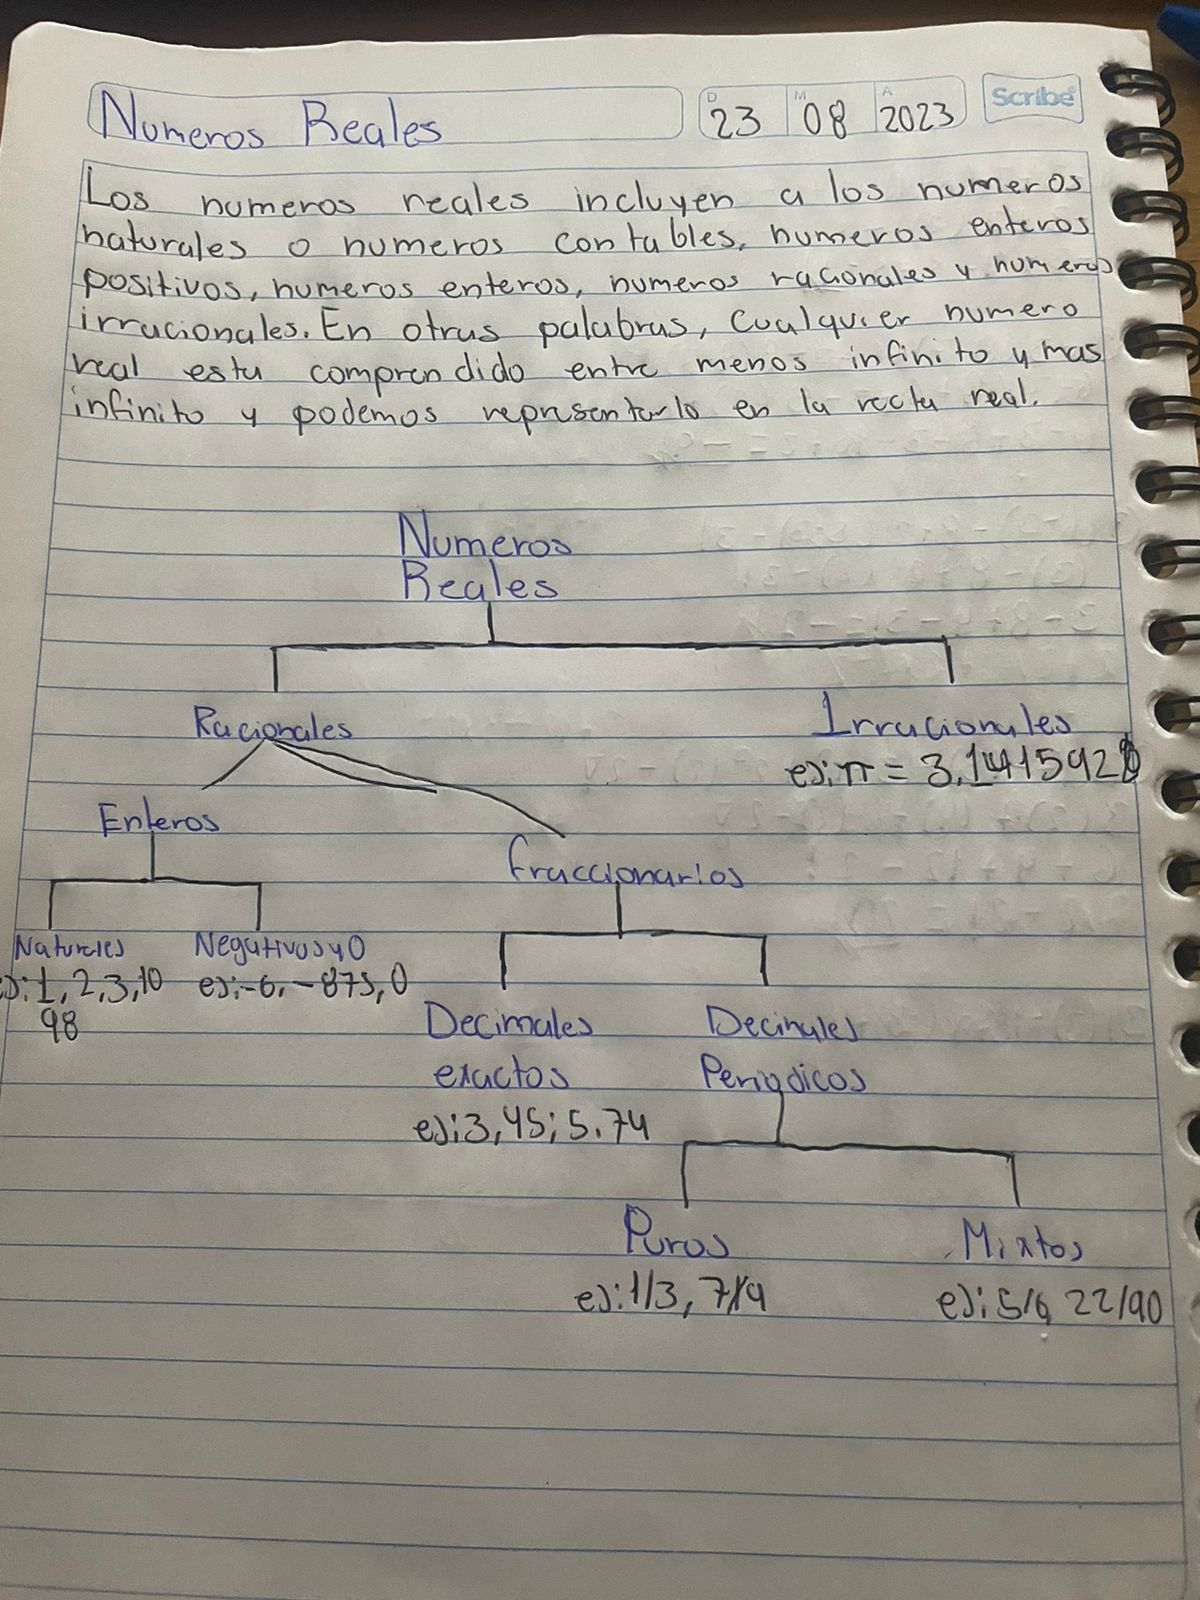 Numeros Reales
D 23 M 08 A 2023
Scribe
Los numeros reales incluyen a los numeros
naturales o numeros contables, numeros enteros
positivos, numeros enteros, numeros racionales y numeros
irracionales. En otras palabras, Cualquier numero
real esta comprendido entre menos infinito y mas
infinito y podemos representarlo en la recta real.
Numeros
Reales
Racionales
Irracionales
ej: π = 3,141592
Enteros
fraccionarios
Naturales
Negativos y 0
ej: 1, 2, 3, 10
98
ej: -6, -875, 0
Decimales
exactos
ej: 3,45; 5.74
Decimales
Periodicos
Puros
ej: 1/3, 7/9
Mixtos
ej: 5/6, 22/90